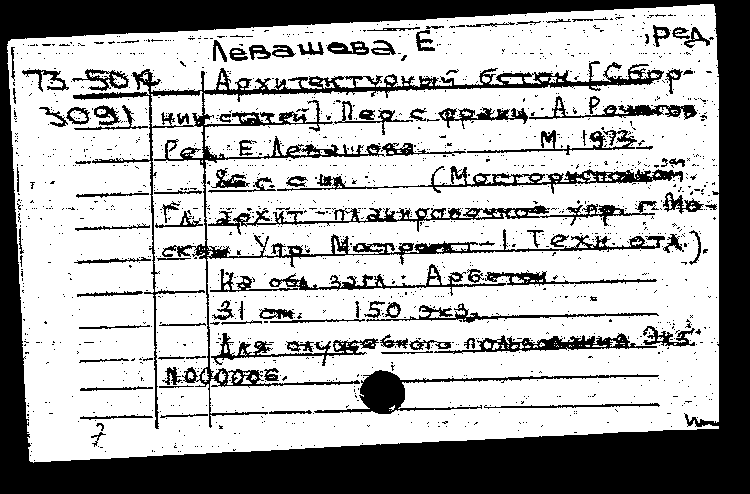 Левашова, Е ,ред.
73-5014 Архитектурный бетон. [Сбор-
3091 ник статей]. Пер с франц. А.
Ред. Е Левашова. М, 1973.
с. с ил. (Мосгорисполком.
Гл. архит-планировочное упр. г. Мо-
сквы. Упр. Моспроект-1. Техн. отд.).
На обл. загл.: Арбетон.
31 см. 150 экз.
Для служебного пользования. Экз.
N000006.
7